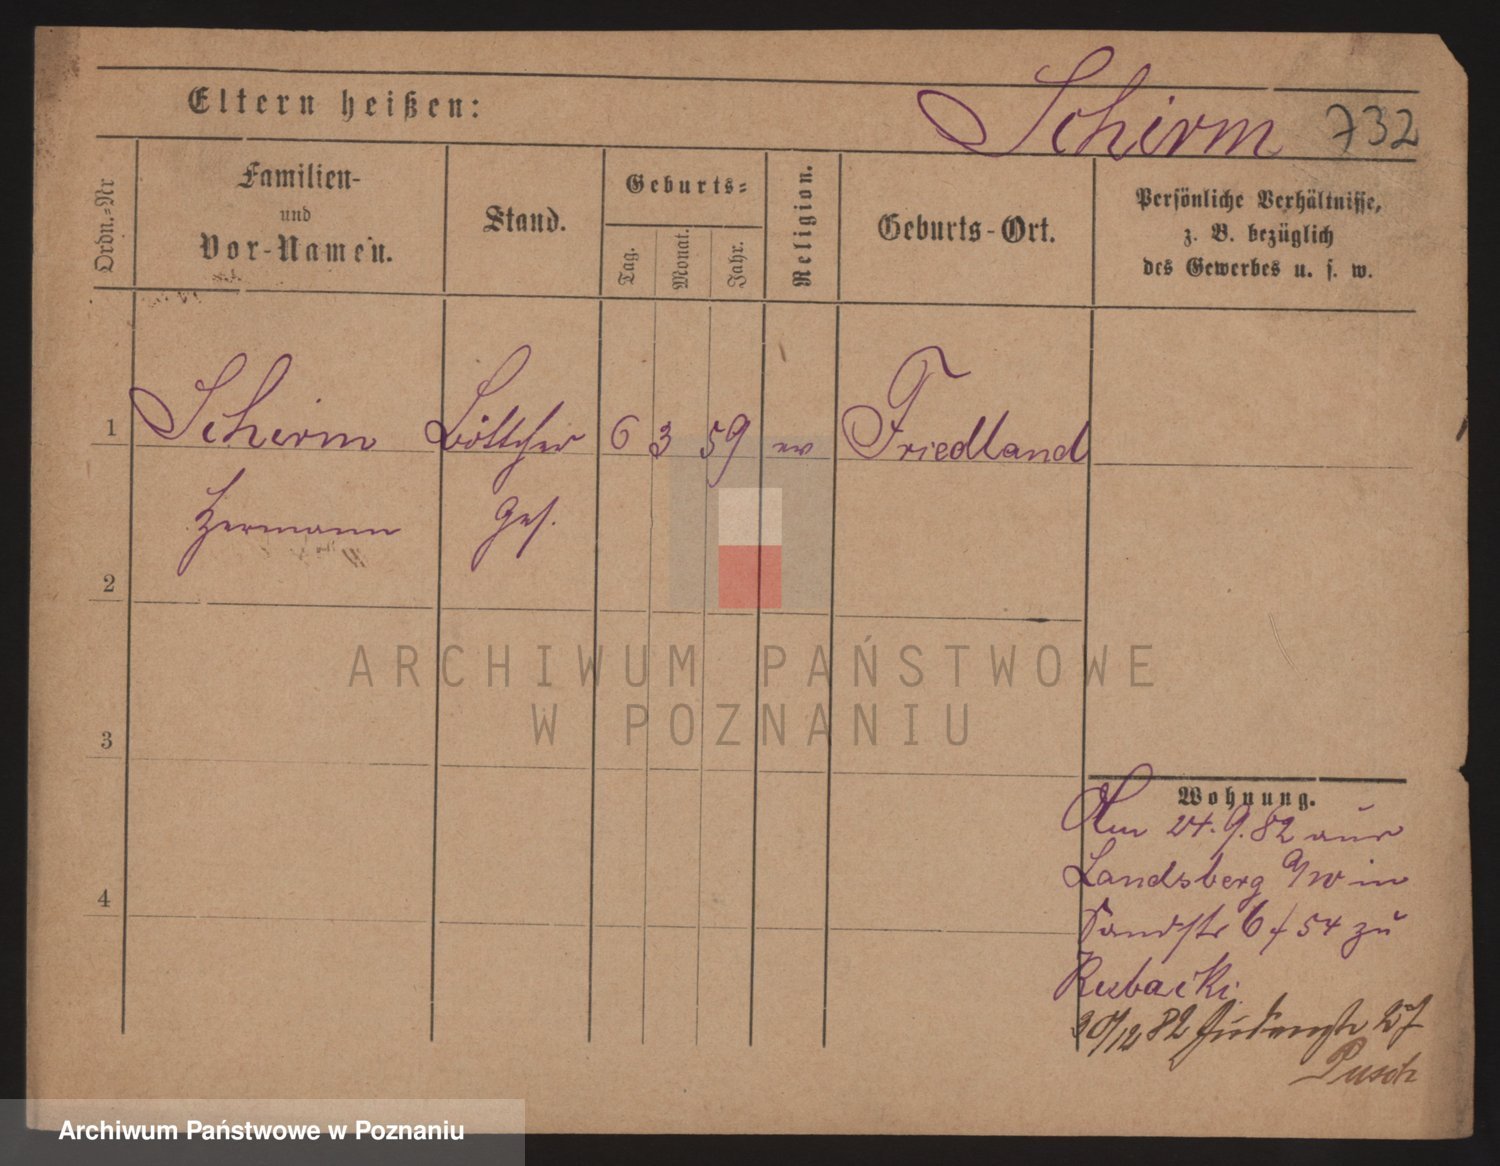 Eltern heißen:
Schirm 732
Ordn.=Nr
Familien-
und
Vor-Namen.
Stand.
Geburts=
Tag.
Monat.
Jahr.
Religion.
Geburts-Ort.
Persönliche Verhältnisse,
z. B. bezüglich
des Gewerbes u. s. w.
1 Schirm Böttcher 6 3 59 ev Friedland
Hermann Ges.
2
3
4
Wohnung.
Am 24.9.82 aus
Landsberg a/w in
Sandstr 6/54 zu
Rubacki
30/12 82 Judenstr 27
Pusch
ARCHIWUM PAŃSTWOWE
W POZNANIU
Archiwum Państwowe w Poznaniu